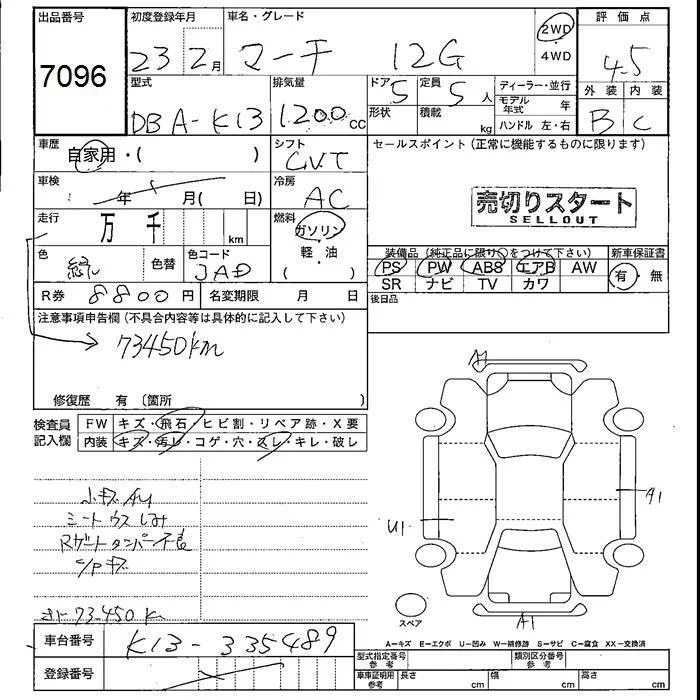 出品番号
7096
初度登録年月
23 2月
車名・グレード
マーチ 12G
2WD
4WD
評価点
4.5
外装 内装
B C
型式
DBA-K13
排気量
1200cc
ドア 5
形状
定員 5人
積載 kg
ディーラー・並行
モデル年式 年
ハンドル 左・右
車歴
自家用・( )
シフト
CVT
セールスポイント(正常に機能するものに限ります)
車検
年 月( 日)
冷房
AC
売切りスタート
SELLOUT
走行
万 千 km
燃料
ガソリン
軽・油
色
緑
色替
色コード
JAD
装備品(純正品に限り○をつけて下さい)
PS PW ABS エアB AW
SR ナビ TV カワ
新車保証書
有・無
R券 8800円
名変期限 月 日
後日品
注意事項申告欄(不具合内容等は具体的に記入して下さい)
73450km
修復歴 有 〔箇所 〕
検査員記入欄
FW キズ・飛石・ヒビ割・リペア跡・X要
内装 キズ・汚レ・コゲ・穴・スレ・キレ・破レ
小キズ AU
シート ウス しみ
Rゲート ダンパー不良
C/P キズ
73.450 K
A1
U1
A1
A1
スペア
A-キズ E-エクボ U-凹み W-補修跡 S-サビ C-腐食 XX-交換済
車台番号
K13-335489
登録番号
型式指定番号 参考
類別区分番号 参考
車庫証明用 参考
長さ cm
幅 cm
高さ cm